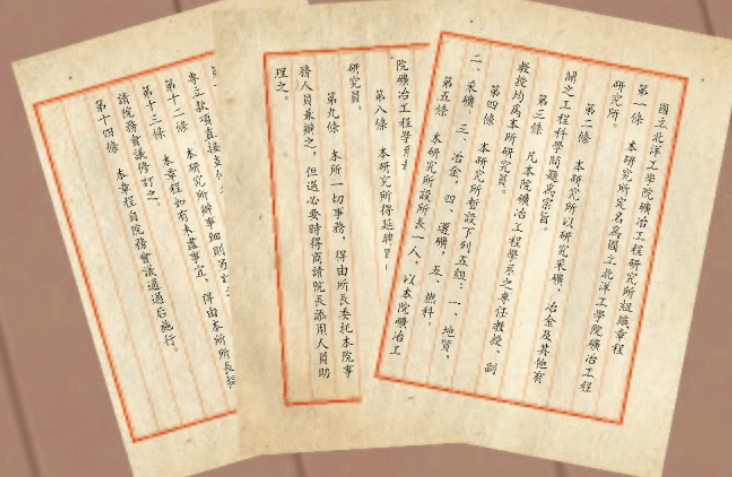 國立北洋工學院礦冶工程研究所組織章程
第一條 本研究所定名爲國立北洋工學院礦冶工程
研究所。
第二條 本研究所以研究采礦、冶金及其他有
關之工程科學問題爲宗旨。
第三條 凡本院礦冶工程學系之專任教授、副
教授均爲本所研究員。
第四條 本研究所暫設下列五組：一、地質，
二、采礦，三、冶金，四、選礦，五、燃料。
第五條 本研究所設所長一人，以本院礦冶工
院礦冶工程學系
第八條 本研究所得延聘
研究員。
第九條 本所一切事務，得由所長委托本院事
務人員兼辦之，但遇必要時得商請院長添用人員助
理之。
專立款項直接支
第十二條 本研究所辦事細則另訂之
第十三條 本章程如有未盡事宜，得由本所所長提
請院務會議修訂之。
第十四條 本章程自院務會議通過后施行。